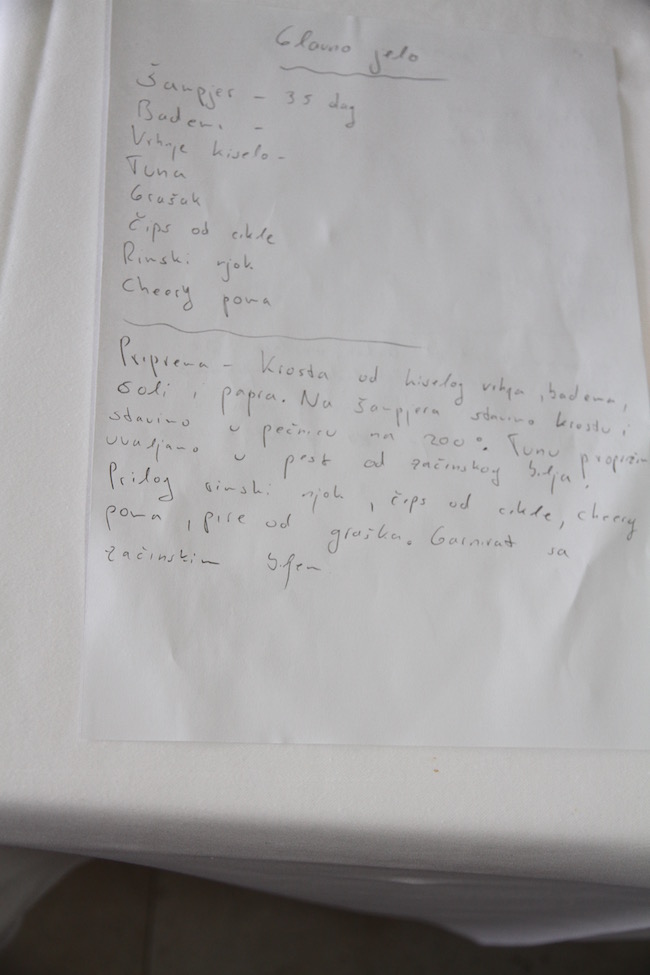 Glavno jelo
Šanpjer - 35 dag
Bademi -
Vrhnje kiselo -
Tuna
Grašak
Čips od cikle
Rimski njok
Cheery poma
Priprema - Krosta od kiselog vrhnja, badema,
soli i papra. Na šanpjera stavimo krostu i
stavimo u pećnicu na 200°. Tunu propržimo
uvaljamo u pest od začinskog bilja.
Prilog rimski njok, čips od cikle, cheery
poma, pire od graška. Garnirat sa
začinskim biljem